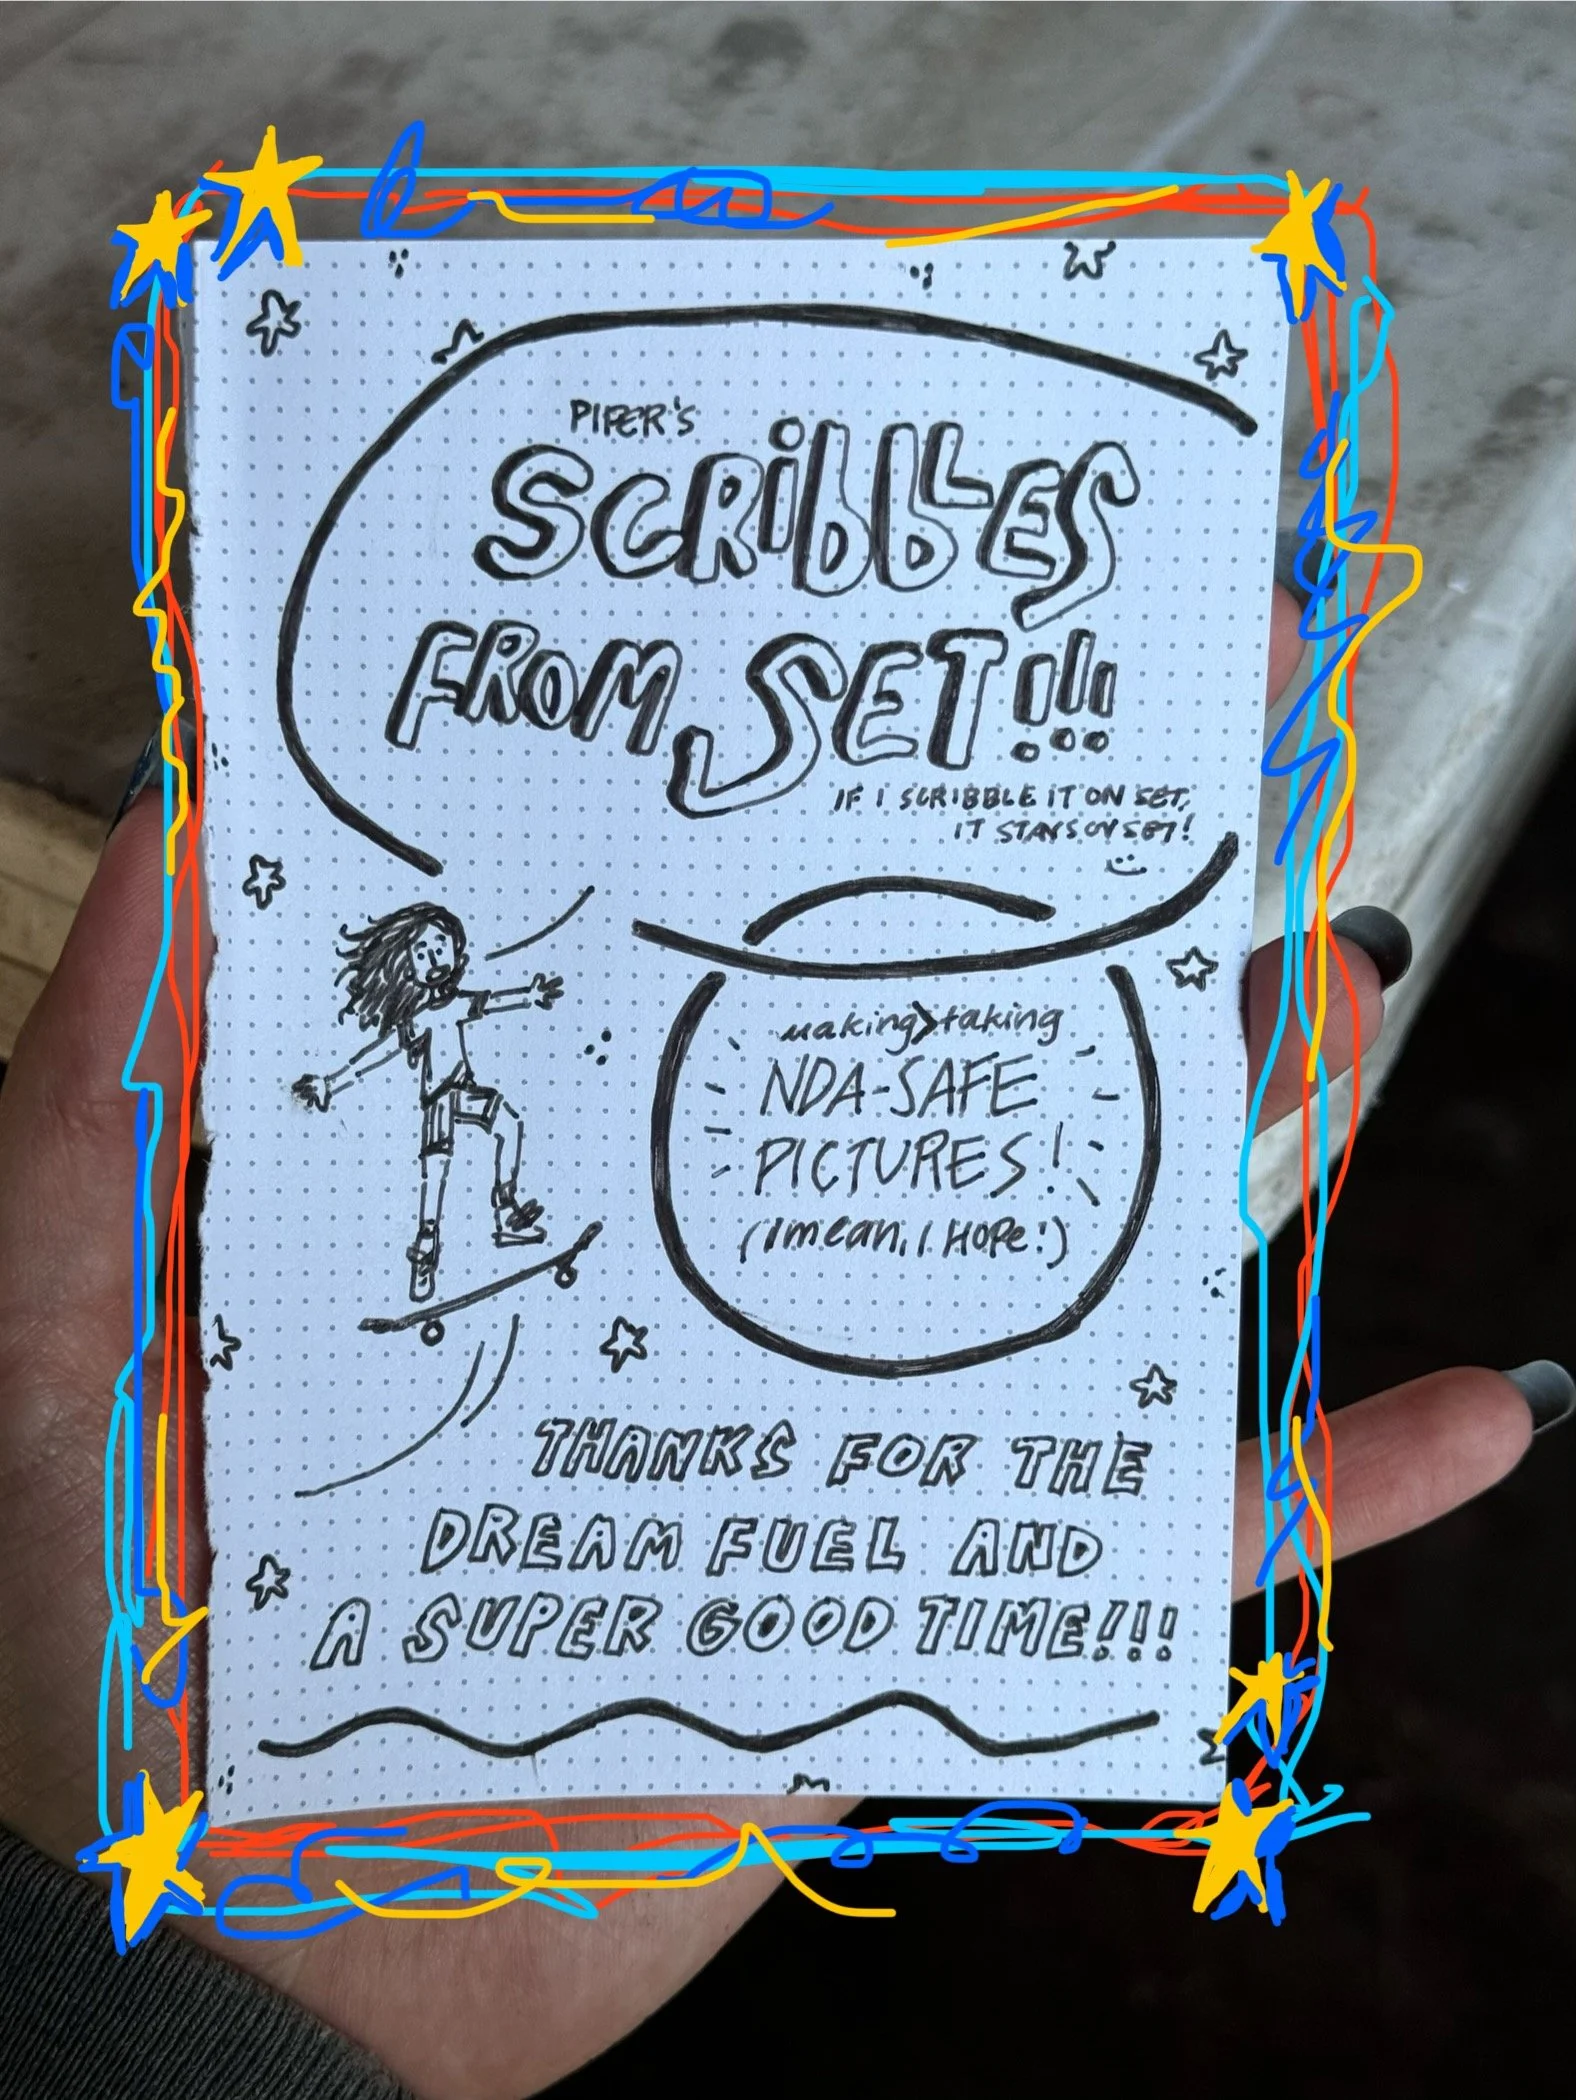 PIPER'S
SCRiBBLES
FROM SET!!!
IF I SCRIBBLE IT ON SET,
IT STAYS ON SET!
making>taking
NDA-SAFE
PICTURES!
(I mean, I HOPe!)
THANKS FOR THE
DREAM FUEL AND
A SUPER GOOD TIME!!!